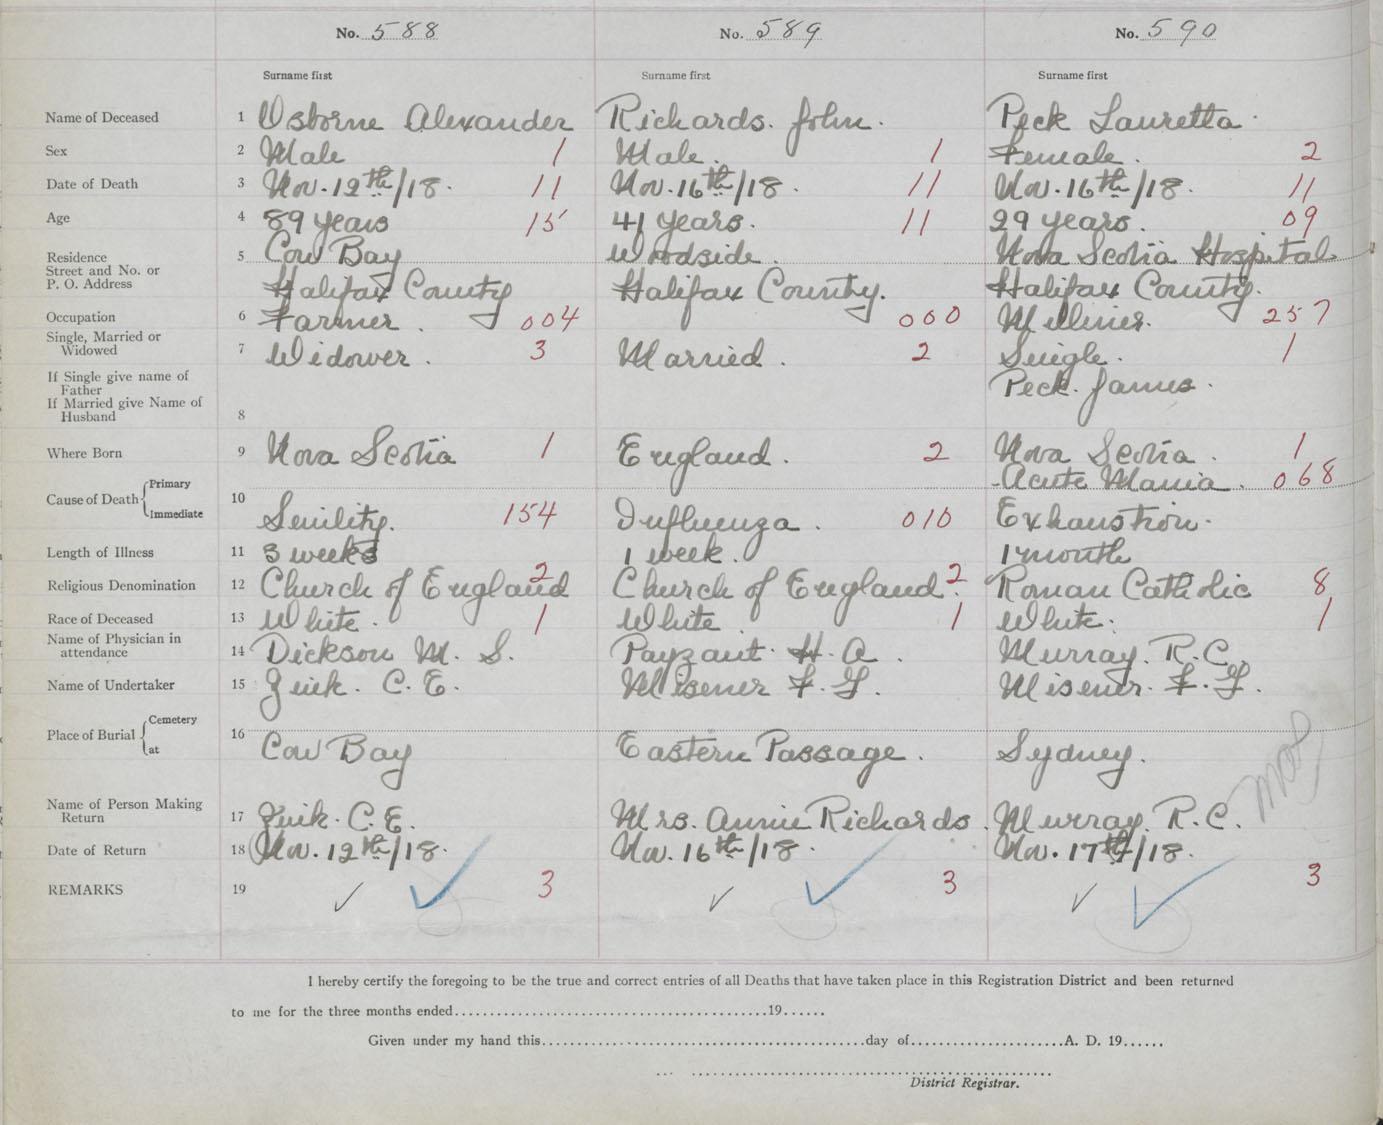 No. 588 No. 589 No. 590
Surname first Surname first Surname first
Name of Deceased 1 Osborne Alexander Richards. John. Peck Lauretta.
Sex 2 Male 1 Male. 1 Female. 2
Date of Death 3 Nov. 12th/18. 11 Nov. 16th/18. 11 Nov. 16th/18. 11
Age 4 89 years 15 41 years. 11 29 years. 09
Residence 5 Cow Bay Woodside. Nova Scotia Hospital
Street and No. or
P. O. Address Halifax County Halifax County. Halifax County.
Occupation 6 Farmer. 004 000 Milliner. 257
Single, Married or
Widowed 7 Widower. 3 Married. 2 Single. 1
If Single give name of
Father Peck. James.
If Married give Name of
Husband 8
Where Born 9 Nova Scotia 1 England. 2 Nova Scotia. 1
Cause of Death Primary 10 Acute Mania. 068
Immediate Senility. 154 Influenza. 010 Exhaustion.
Length of Illness 11 3 weeks 1 week. 1 month
Religious Denomination 12 Church of England 2 Church of England. 2 Roman Catholic 8
Race of Deceased 13 White. 1 White 1 White. 1
Name of Physician in
attendance 14 Dickson M. S. Payzant. H. A. Murray. R. C.
Name of Undertaker 15 Zink. C. E. Misener F. G. Misener. F. G.
Place of Burial Cemetery 16
at Cow Bay Eastern Passage. Sydney.
Name of Person Making
Return 17 Zink. C. E. Mrs. Annie Richards. Murray. R. C.
Date of Return 18 Nov. 12th/18. Nov. 16th/18. Nov. 17th/18.
REMARKS 19 3 3 3
I hereby certify the foregoing to be the true and correct entries of all Deaths that have taken place in this Registration District and been returned
to me for the three months ended..........19......
Given under my hand this..........day of..........A. D. 19......
District Registrar.